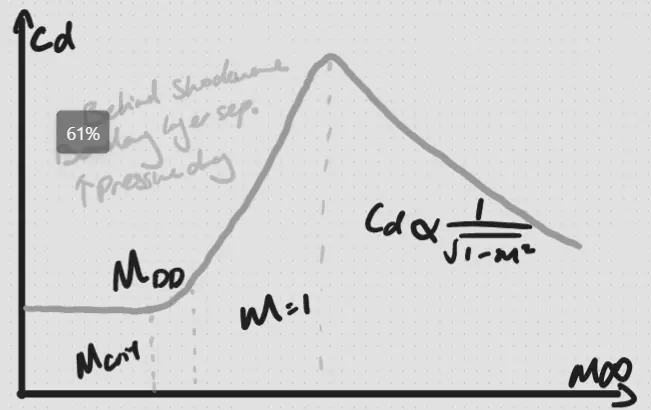 Cd
Behind shockwave
61%
layer sep.
↑ pressure drag
Cd ∝ 1/√1-M²
MDD
M=1
Mcrit
M∞